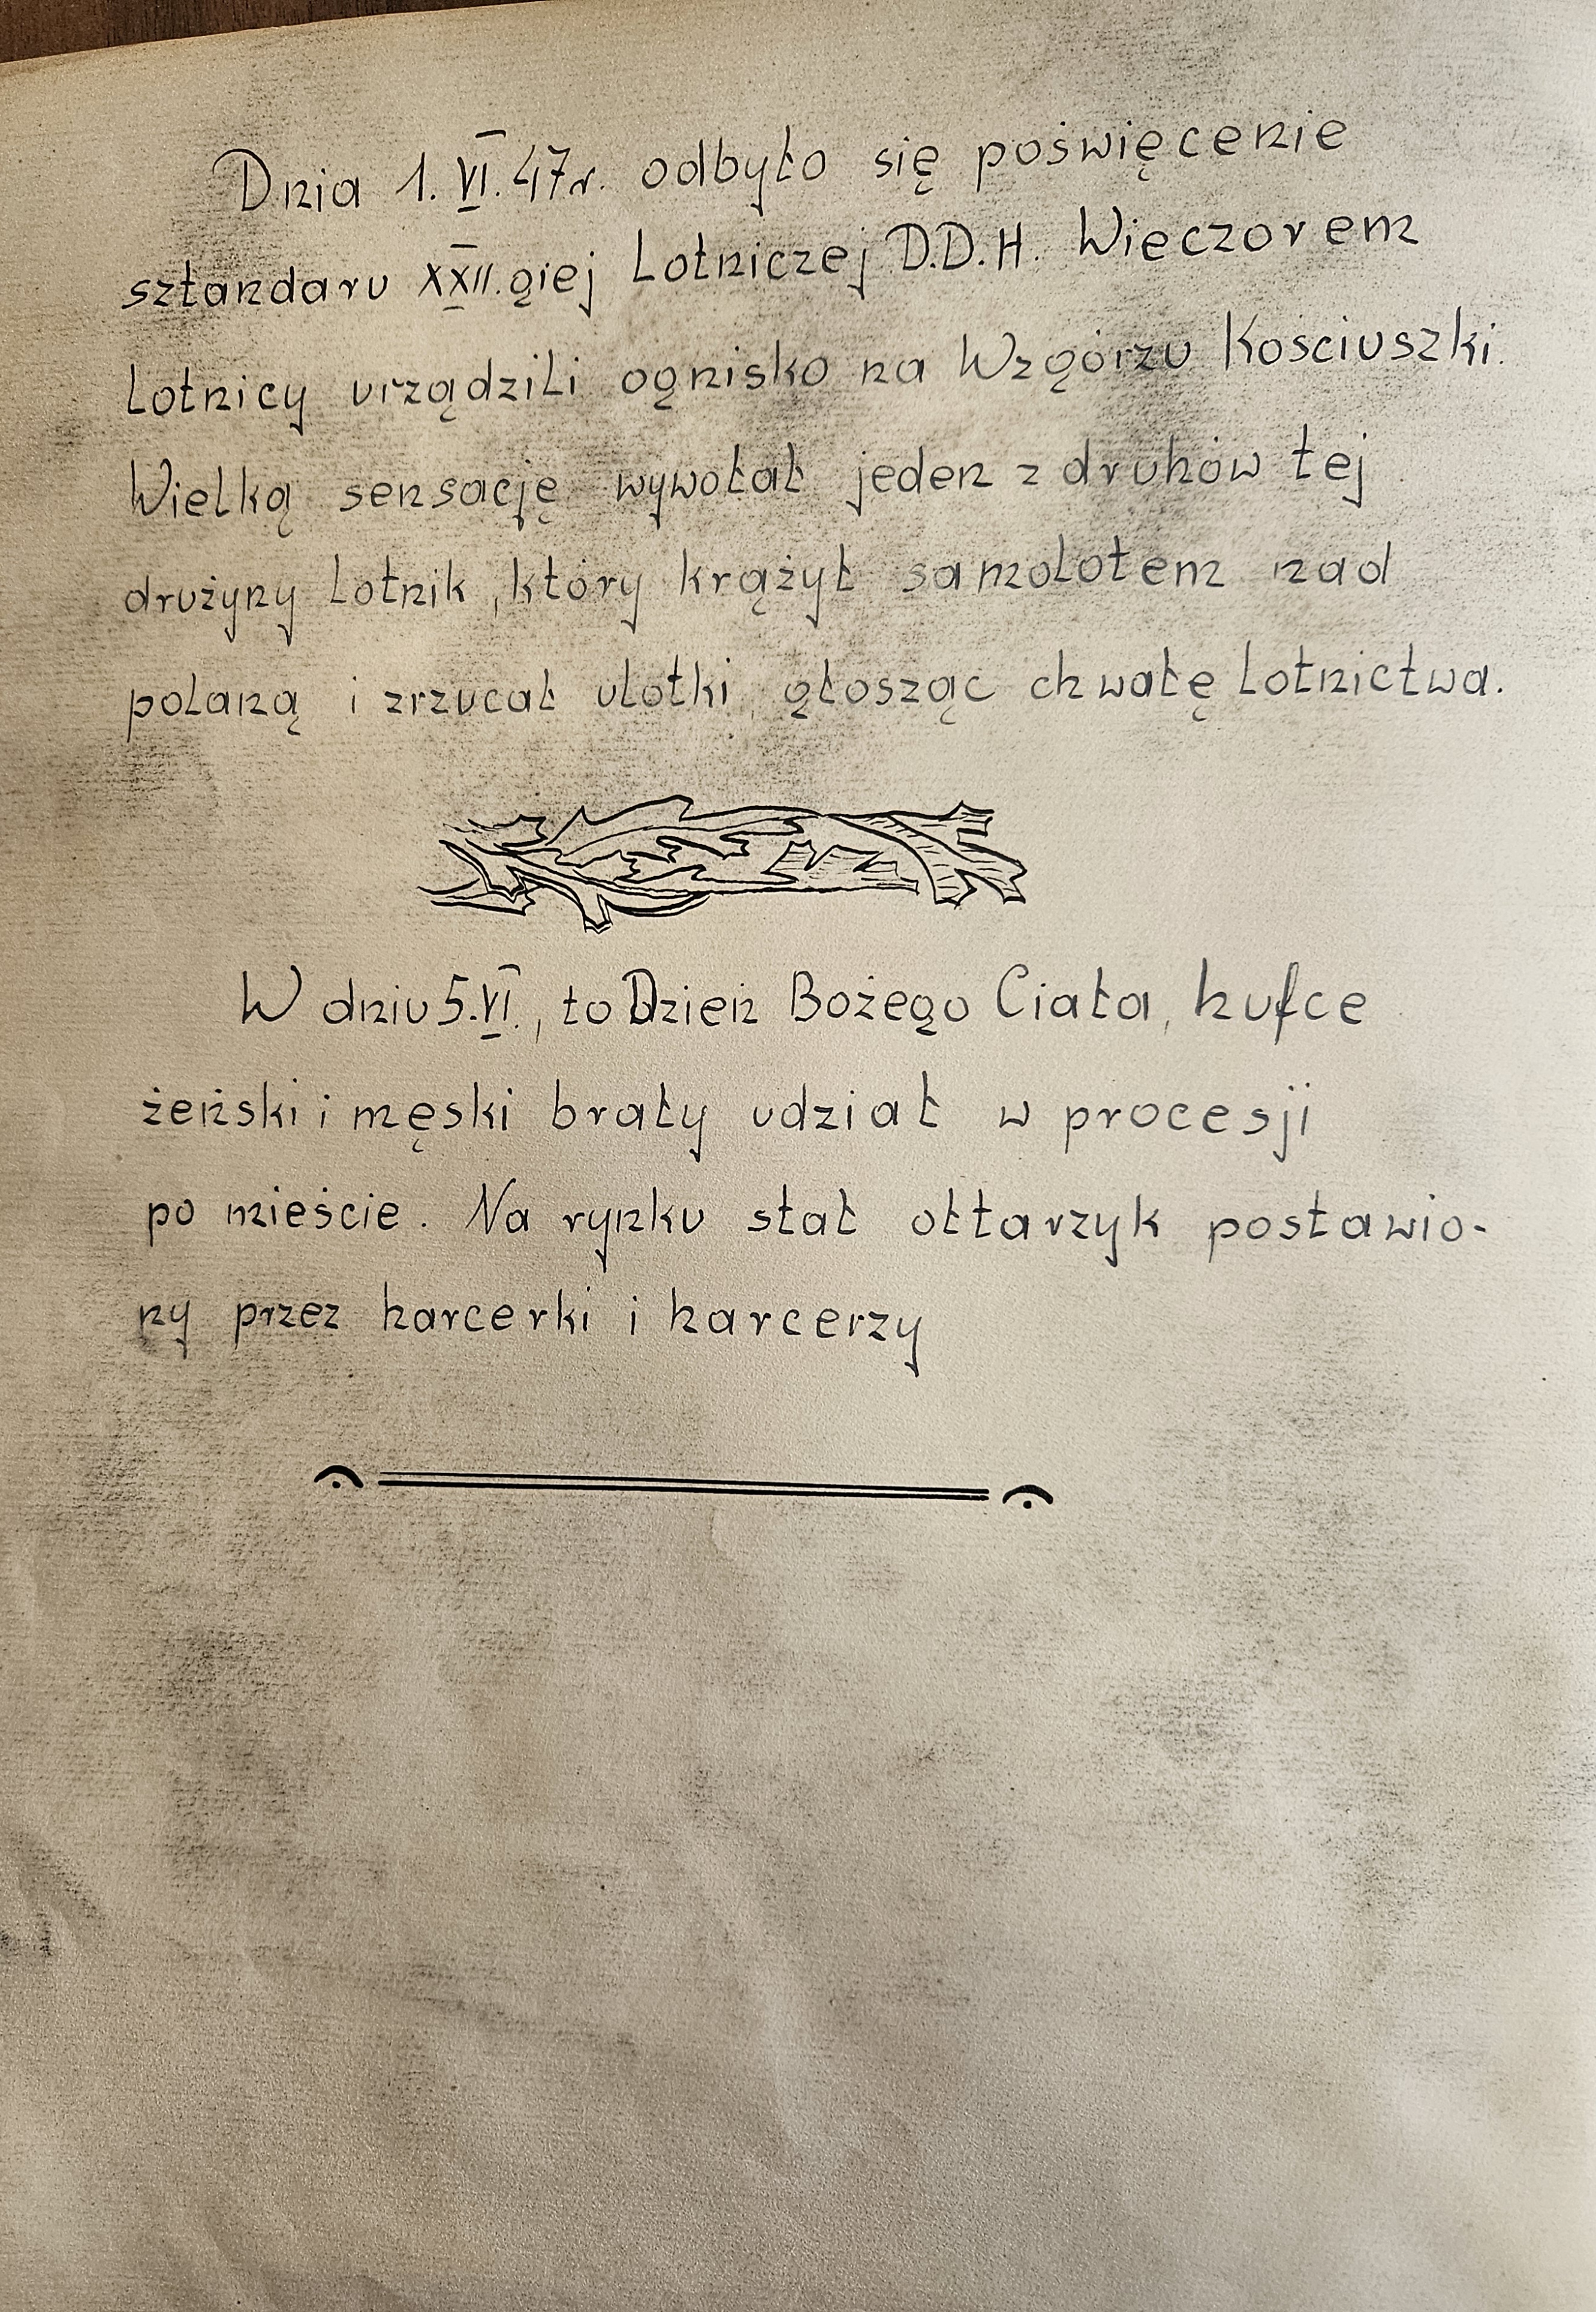 Dnia 1.VI.47r. odbyło się poświęcenie
sztandaru XXII.giej Lotniczej D.D.H. Wieczorem
Lotnicy urządzili ognisko na Wzgórzu Kościuszki.
Wielką sensację wywołał jeden z druhów tej
drużyny lotnik, który krążył samolotem nad
polaną i zrzucał ulotki, głosząc chwałę lotnictwa.
W dniu 5.VI., to Dzień Bożego Ciała, hufce
żeński i męski brały udział w procesji
po mieście. Na rynku stał ołtarzyk postawio-
ny przez harcerki i harcerzy